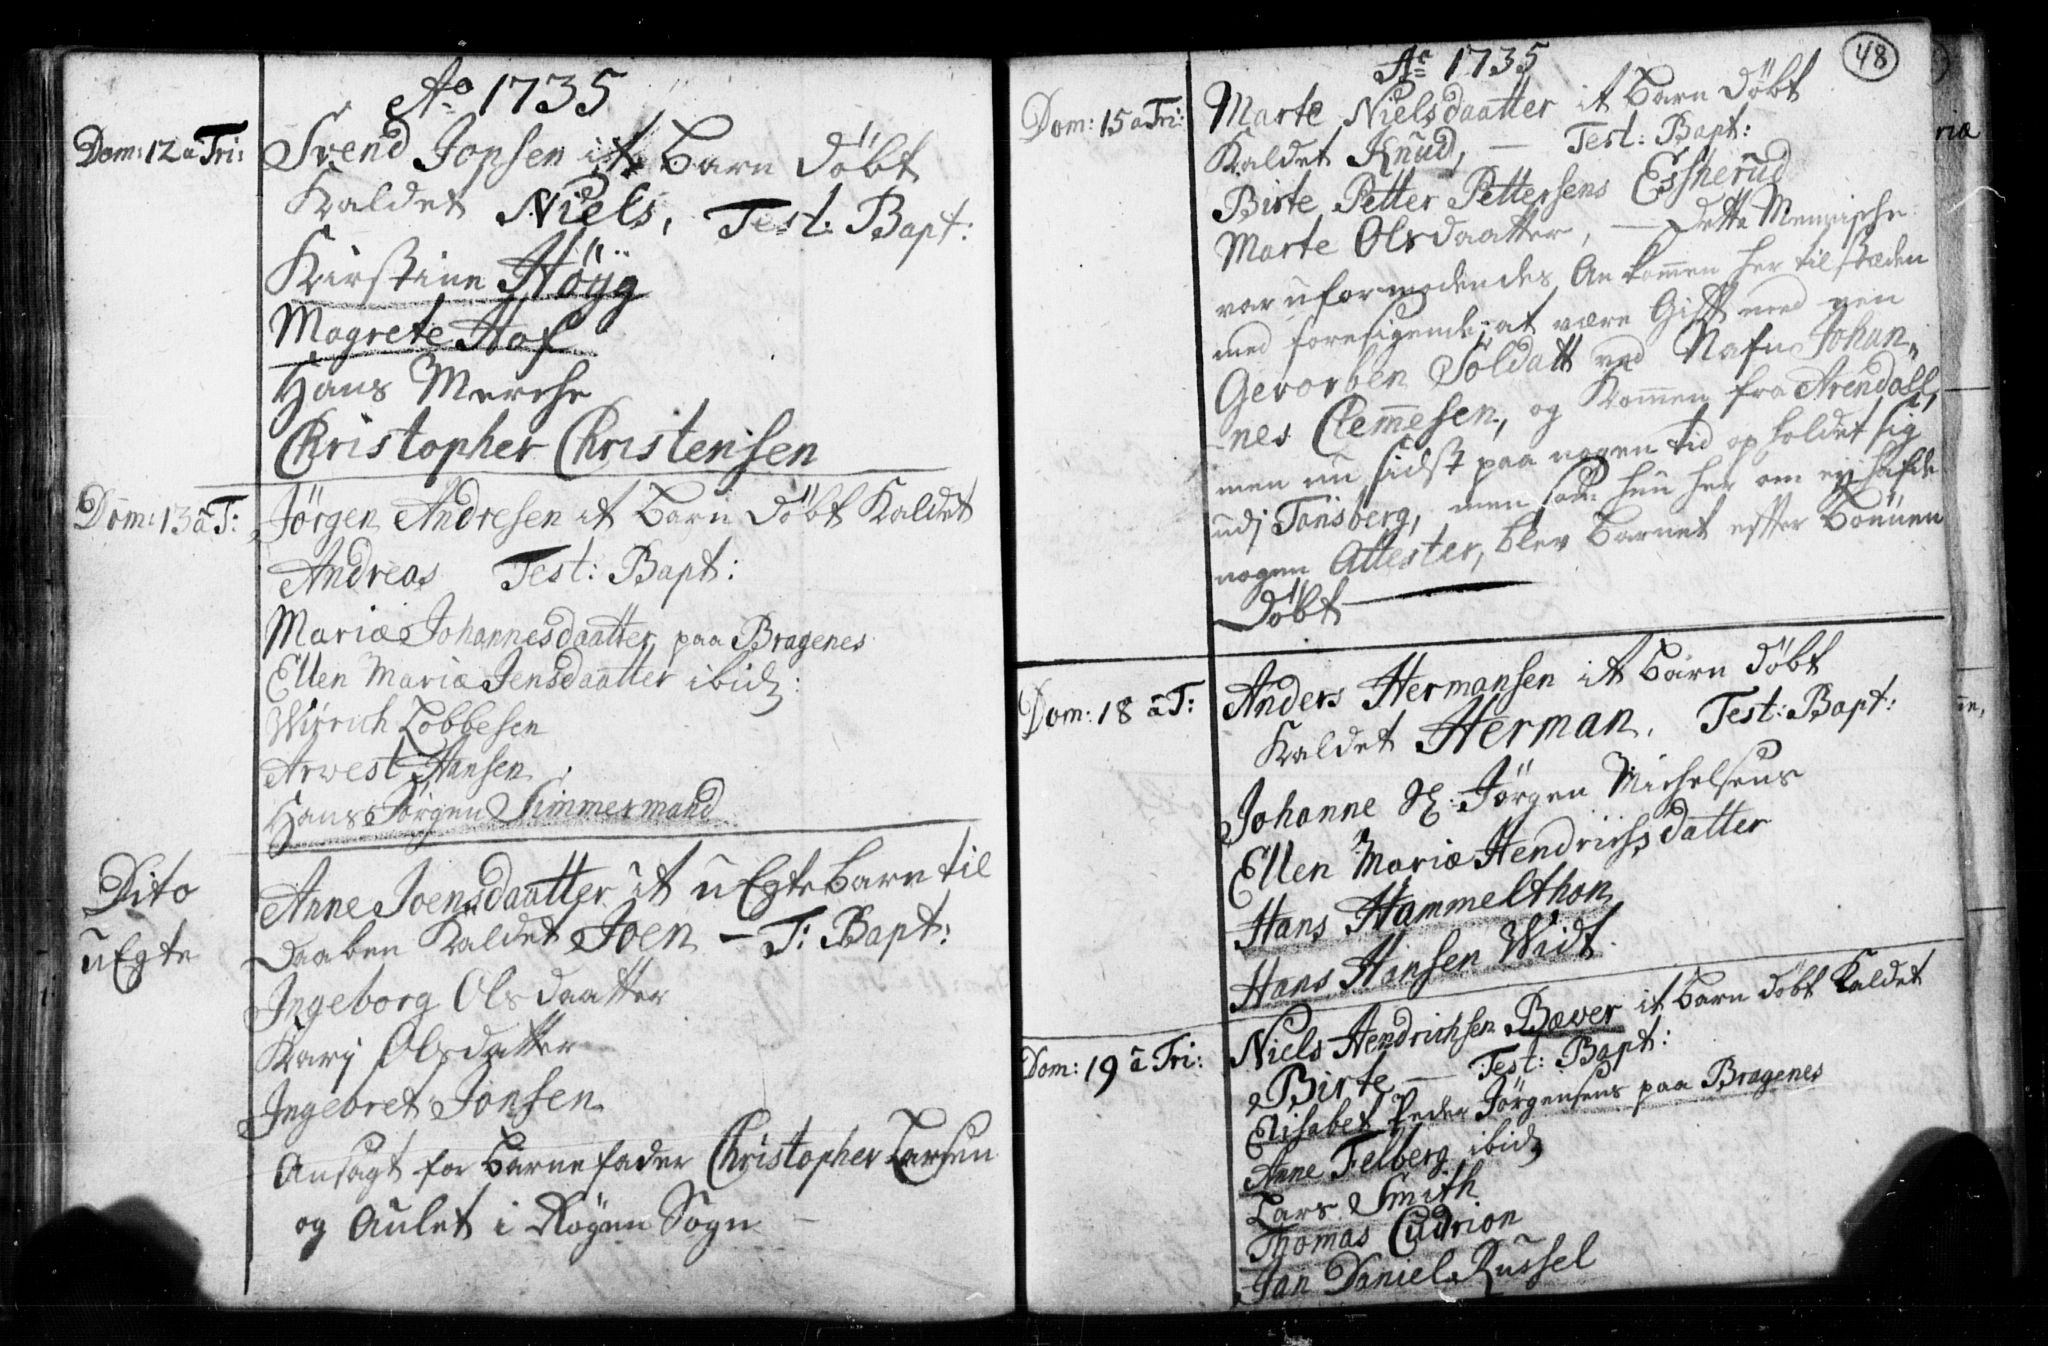 Ao 1735
Dom: 12 a Tri: Svend Jopsen it Barn Döbt
Kaldet Niels, Test: Bapt:
Kirstine Höyg
Magrete Hof
Hans Merche
Christopher Christensen
Dom: 13 a T: Jörgen Andresen it Barn Döbt Kaldet
Andreas Test: Bapt:
Maria Johannesdaatter paa Bragenes
Ellen Maria Jensdaatter ibid:
Lobbesen
Arvest Hansen
Hans Jörgen Timmermand
Dito Anne Joensdaatter it uEgte Barn til
uEgte Daaben Kaldet Joen – T: Bapt:
Ingeborg Olsdaatter
Karj Olsdatter
Ingebret Jonsen
Ansagt for Barnefader Christopher Larsen
og Aulet i Röyen Sogn –
48
Ao 1735
Dom: 15 a Tri: Marte Nielsdaatter it Barn Döbt
Kaldet Knud, — Test: Bapt:
Birte Petter Pettersens Essherud
Marte Olsdaatter, — Dette Mennische
var uformodendes Ankommen her til stæden
med foresigende, at være Gift med een
Gevorben Soldatt ved Nafn Johan„
nes Clemmesen, og Kommen fra Arendall,
men nu sidst paa nogen tid opholdet sig
udj Tonsberg, men som hun her om ej hafde
nogen Attester, blev Barnet effter Bönnen
Döbt —
Dom: 18 a T: Anders Hermansen it Barn Döbt
Kaldet Herman. Test: Bapt:
Johanne Sl: Jörgen Michelsens
Ellen Maria Hendrichsdatter
Hans Hammelthon
Hans Hansen Widt.
Dom: 19 a Tri: Niels Hendrichsen Bæver it Barn Döbt Kaldet
Birte — Test: Bapt:
Elisabet Peder Jörgensens paa Bragenes
Anne Felberg ibid
Lars Smith
Thomas Cudrion
Jan Daniel Russel